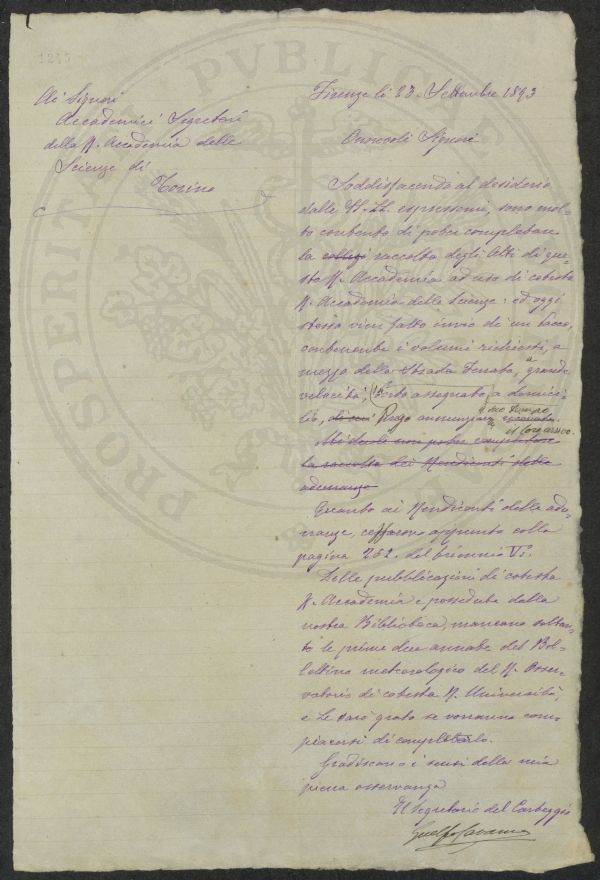 1245
Ai Signori
Accademici Segretari
della R. Accademia delle
Scienze di
Torino
Firenze li 23. Settembre 1893
Onorevoli Signori
Soddisfacendo al desiderio
dalle SS. LL. espressomi, sono mol-
to contento di poter completare
la raccolta degli Atti di que-
sta R. Accademia ad uso di cotesta
R. Accademia delle Scienze: ed oggi
stesso vien fatto invio di un pacco,
contenente i volumi richiesti, a
mezzo della Strada Ferrata, a grande
velocità, porto assegnato a domici-
lio, Prego annunziare
a suo tempo
Mi duole non poter completare
la raccolta dei Rendiconti delle
adunanze
Quanto ai Rendiconti delle adu-
nanze, cessarono appunto colla
pagina 252. del biennio V°.
Delle pubblicazioni di cotesta
R. Accademia e possedute dalla
nostra Biblioteca, mancano soltan-
to le prime due annate del Bol-
lettino meteorologico del R. Osser-
vatorio di cotesta R. Università,
e Le sarò grato se vorranno com-
piacersi di completarlo.
Gradiscano i sensi della mia
piena osservanza
Il Segretario del Carteggio
Guelfo Cavanna
PROSPERITATI PUBLICAE